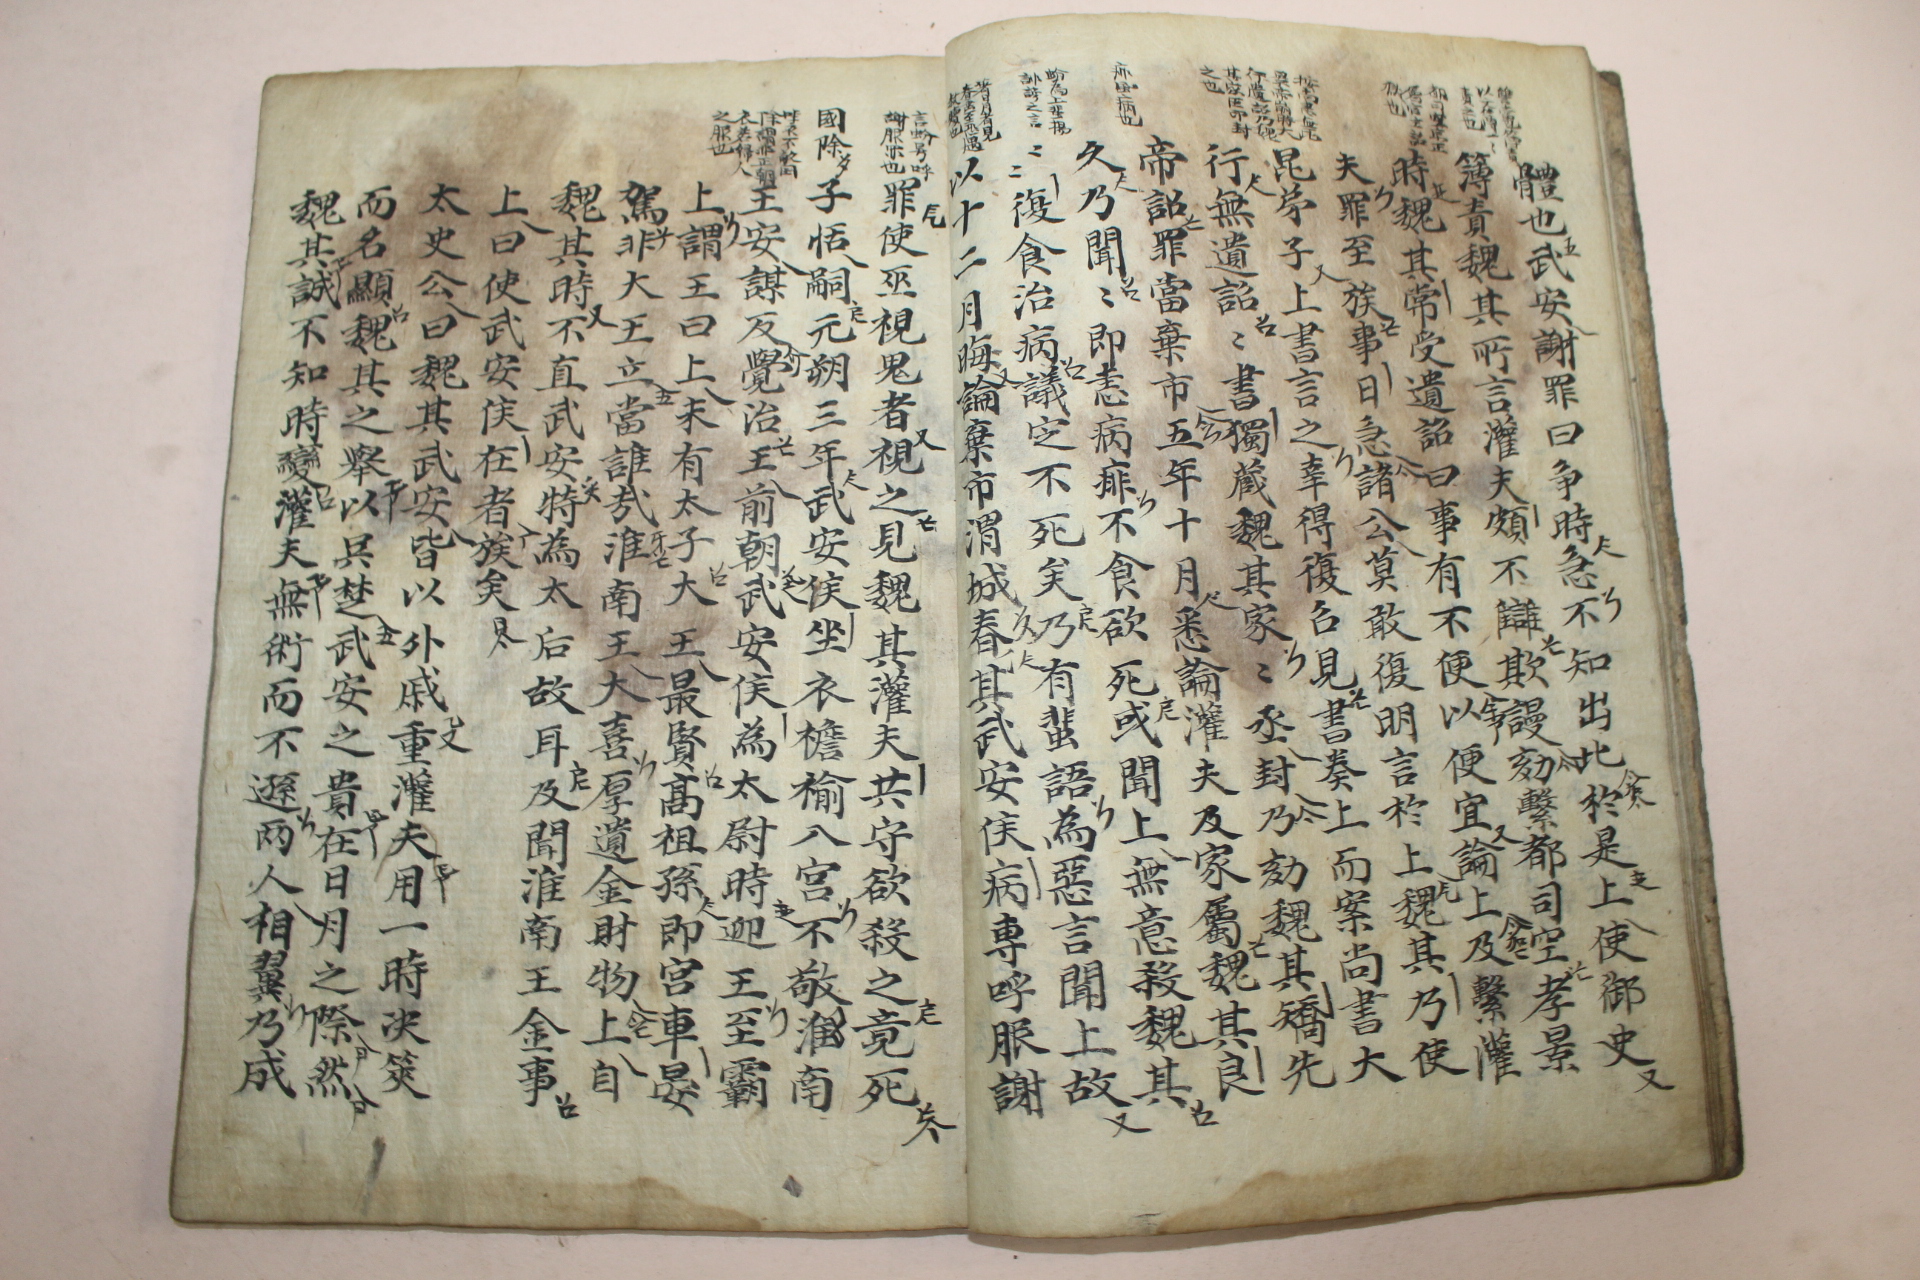 體也武安謝罪曰争時急不知出此於是上使御史
簿責魏其所言灌夫頗不讎欺謾劾繫都司空孝景
時魏其常受遺詔曰事有不便以便宜論上及繫灌
夫罪至族事日急諸公莫敢復明言於上魏其乃使
昆弟子上書言之幸得復召見書奏上而案尚書大
行無遺詔〻書獨藏魏其家〻丞封乃劾魏其矯先
帝詔罪當棄市五年十月悉論灌夫及家屬魏其良
久乃聞〻即恚病痱不食欲死或聞上無意殺魏其
〻〻復食治病議定不死矣乃有蜚語為惡言聞上故
以十二月晦論棄市渭城春其武安侯病專呼服謝
罪使巫視鬼者視之見魏其灌夫共守欲殺之竟死
國除
子恬嗣元朔三年武安侯坐衣襜褕入宮不敬淮南
王安謀反覺治王前朝武安侯為太尉時迎王至霸
上謂王曰上未有太子大王最賢高祖孫即宮車晏
駕非大王立當誰㢤淮南王大喜厚遺金財物上自
魏其時不直武安特為太后故耳及聞淮南王金事
上曰使武安侯在者族矣
太史公曰魏其武安皆以外戚重灌夫用一時决筞
而名顯魏其之舉以吳楚武安之貴在日月之際然
魏其誠不知時變灌夫無術而不遜两人相翼乃成